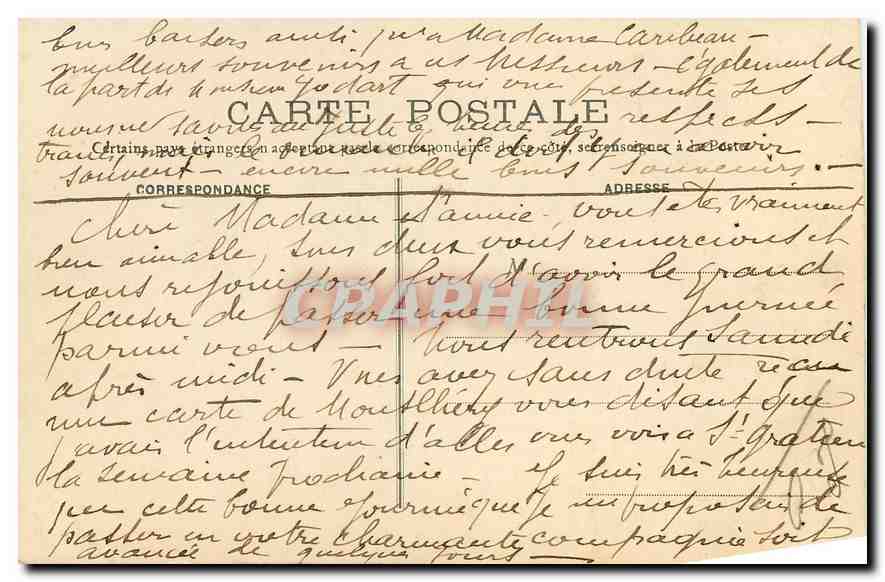 bons baisers ainsi qu'à Madame Caribeau —
meilleurs souvenirs à ces Messieurs — également de
la part de monsieur Jodart qui vous présente ses
CARTE POSTALE
respects —
Certains pays étrangers n'acceptant pas la correspondance de ce côté, se renseigner à la Poste
souvent — encore mille bons souvenirs. —
CORRESPONDANCE
ADRESSE
Chère Madame et amie, vous êtes vraiment
bien aimable, tous deux vous remercions et
M
nous réjouissons fort d'avoir le grand
CRAPHIL
plaisir de passer une bonne journée
parmi vous — Nous rentrons Samedi
après midi — Vous avez sans doute reçu
une carte de Montlhéry vous disant que
j'avais l'intention d'aller vous voir à St gratien
la semaine prochaine — Je suis très heureuse
que cette bonne journée que je me proposais de
passer en votre charmante compagnie soit
avancée de quelques jours —